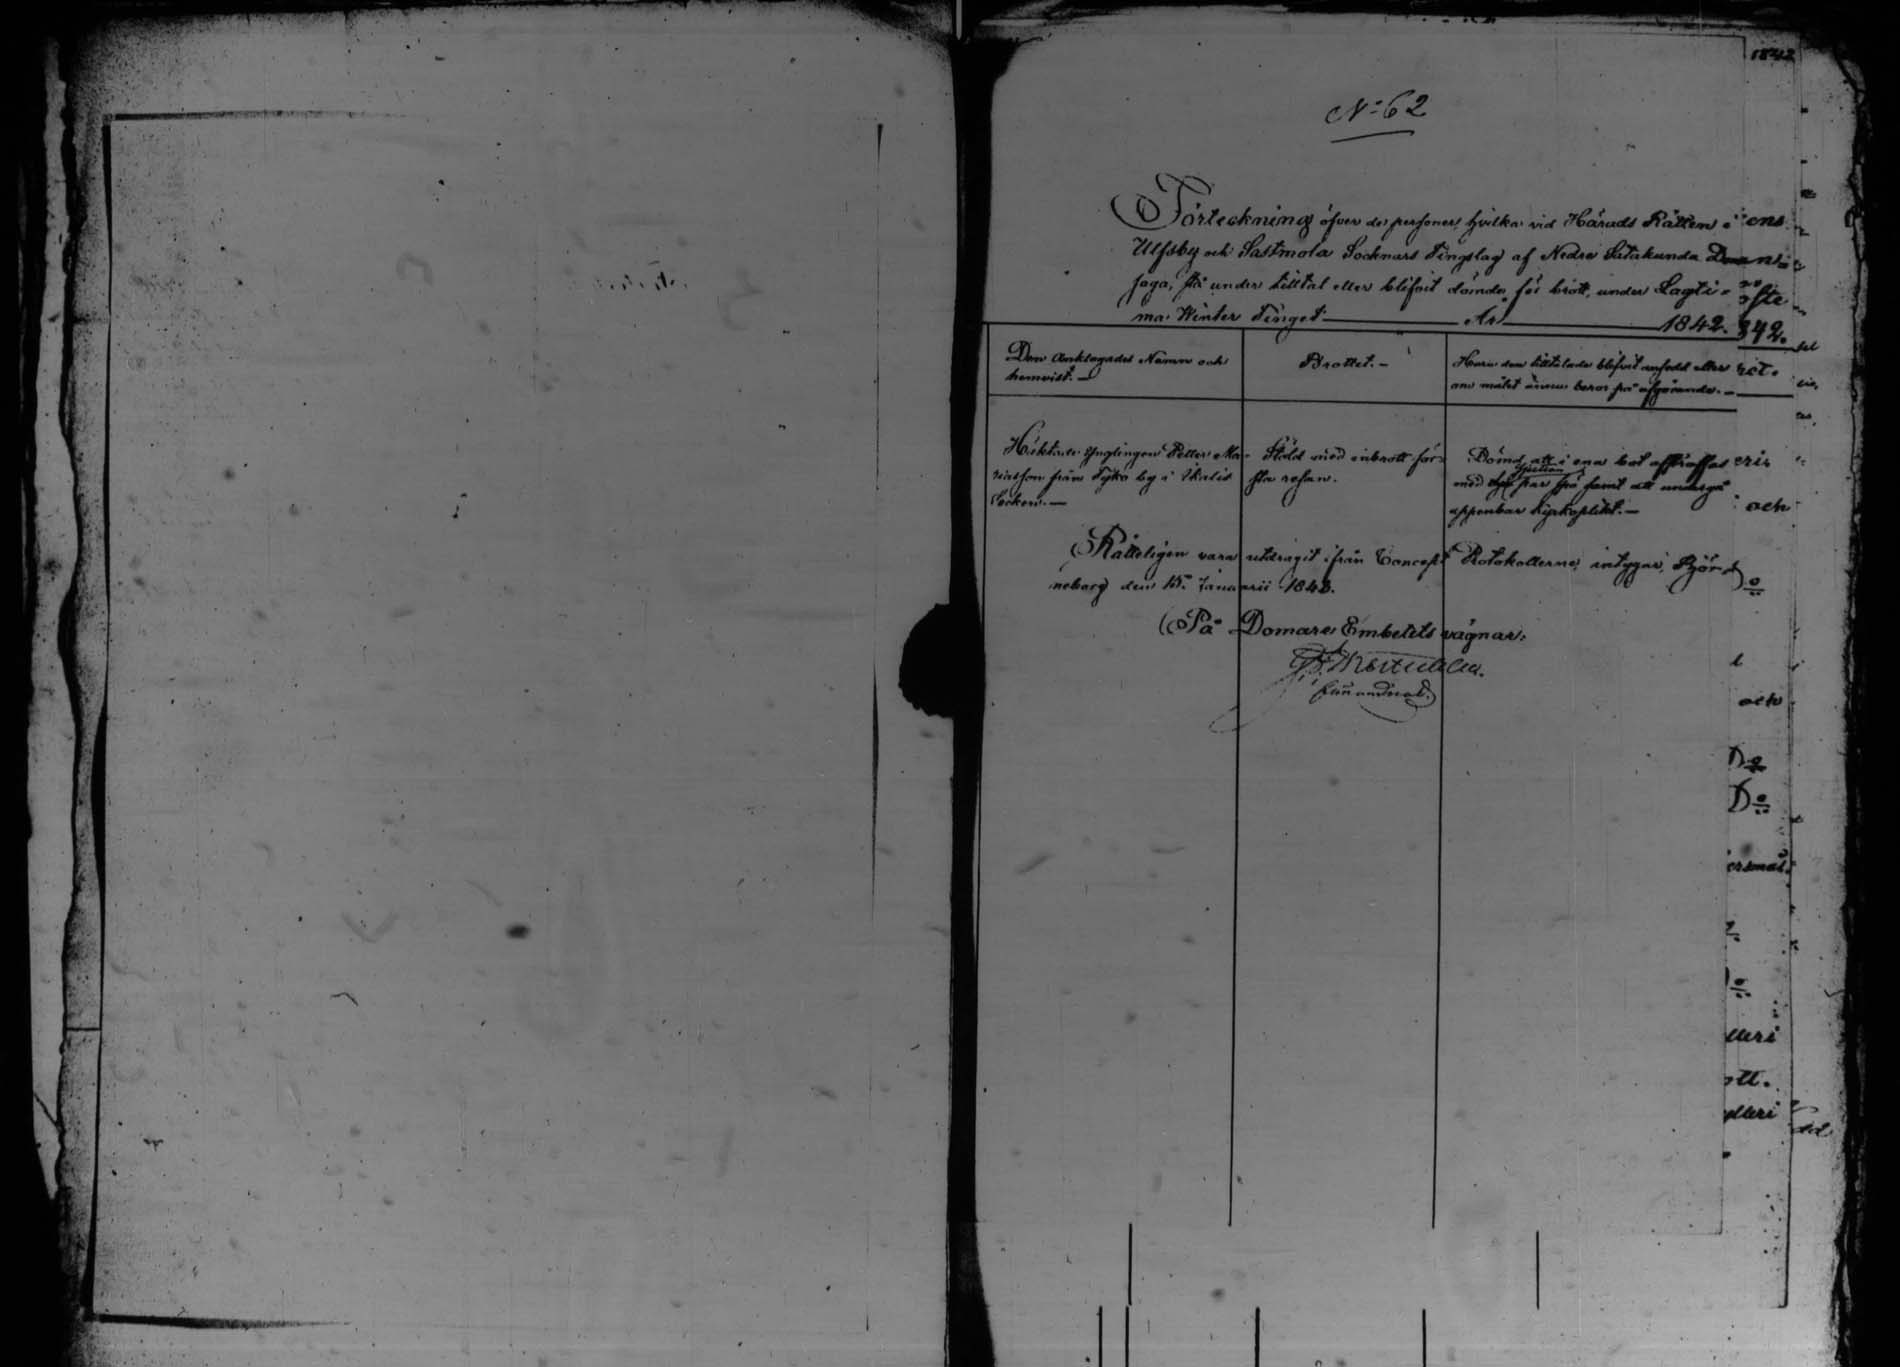 1842
N:o 62
Förteckning öfver de personer, hvilka vid Härads Rätten i
Ulfsby och Sastmola Socknars Tingslag af Nedre Satakunda Dom
saga, stå under tilltal eller blifvit dömde för brott, under Lagti-
ma Winter Tinget År 1842.
Den Anklagades Namn och
hemvist.—
Brottet.—
Huru den tilltalade blifvit ansedd eller
om målet ännu beror på afgörande.—
Häktade Ynglingen Petter Ma-
thiasson från Tyko by i Ikalis
Socken.—
Stöld med inbrott för-
sta resan.
Dömd att i ena bot afstraffas
med par spö samt att undergå
uppenbar Kyrkoplikt.—
Rätteligen vara utdragit ifrån Concept Protokollerne, intygar, Björ-
neborg den 15 Januarii 1842.
På Domare Embetets vägnar.
ens
ofte
842.
och
och
D:o
D:o
ersmål.
lleri
ott.
lleri